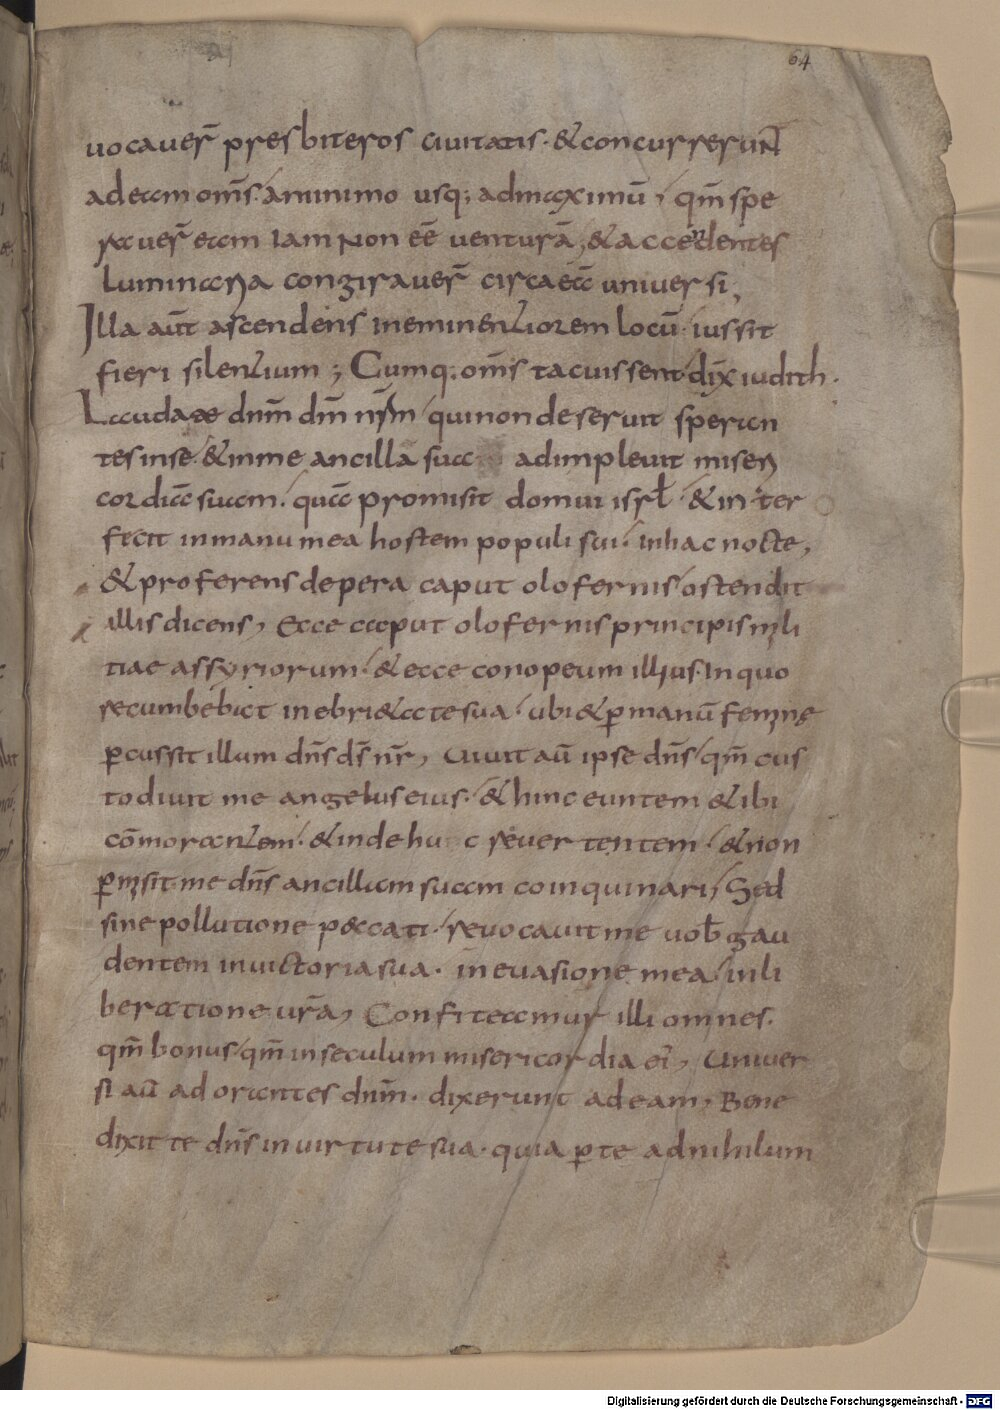 64
uocauer̄ presbiteros ciuitatis · & concurrerunt
ad eam om̄s · a minimo usq; ad maximū / qm̄ spe
rauer̄ eam iam non eē uenturā ; & accendentes
luminaria congirauer̄ circa eā uniuersi ,
Illa aūt ascendens in eminentiorem locū · iussit
fieri silentium ; Cumq; om̄s tacuissent / dix̄ iudith ·
Laudate dnm̄ dm̄ nr̄m / qui non deseruit speran
tes in se · & in me ancilla sua adimpleuit miseri
cordia suam · qua promisit domui isrl̄ · & inter
fecit in manu mea hostem populi sui · in hac nocte ,
& proferens de pera caput olofernis / ostendit
illis dicens , Ecce caput olofernis principis mili
tiae assyriorum · & ecce conopeum illius · in quo
recumbebat in ebri&ate sua · ubi & p̄ manū feminę
p̄cussit illum dn̄s ds̄ nr̄ , Uiuit aū ipse dn̄s / qm̄ cus
todiuit me angelus eius · & hinc euntem & ibi
cōmorantem · & inde huc reuertentem · & non
p̄misit me dn̄s ancillam suam coinquinari ; Sed
sine pollutione peccati · reuocauit me uob̄ gau
dentem in uictoria sua · in euasione mea / in li
beratione ur̄a , Confiteamur illi omnes ·
qm̄ bonus / qm̄ in seculum misericordia ei' , Uniuer
si aū adorantes dnm̄ · dixerunt ad eam , Bene
dixit te dn̄s in uirtute sua · quia p̄ te ad nihilum
Digitalisierung gefördert durch die Deutsche Forschungsgemeinschaft - DFG